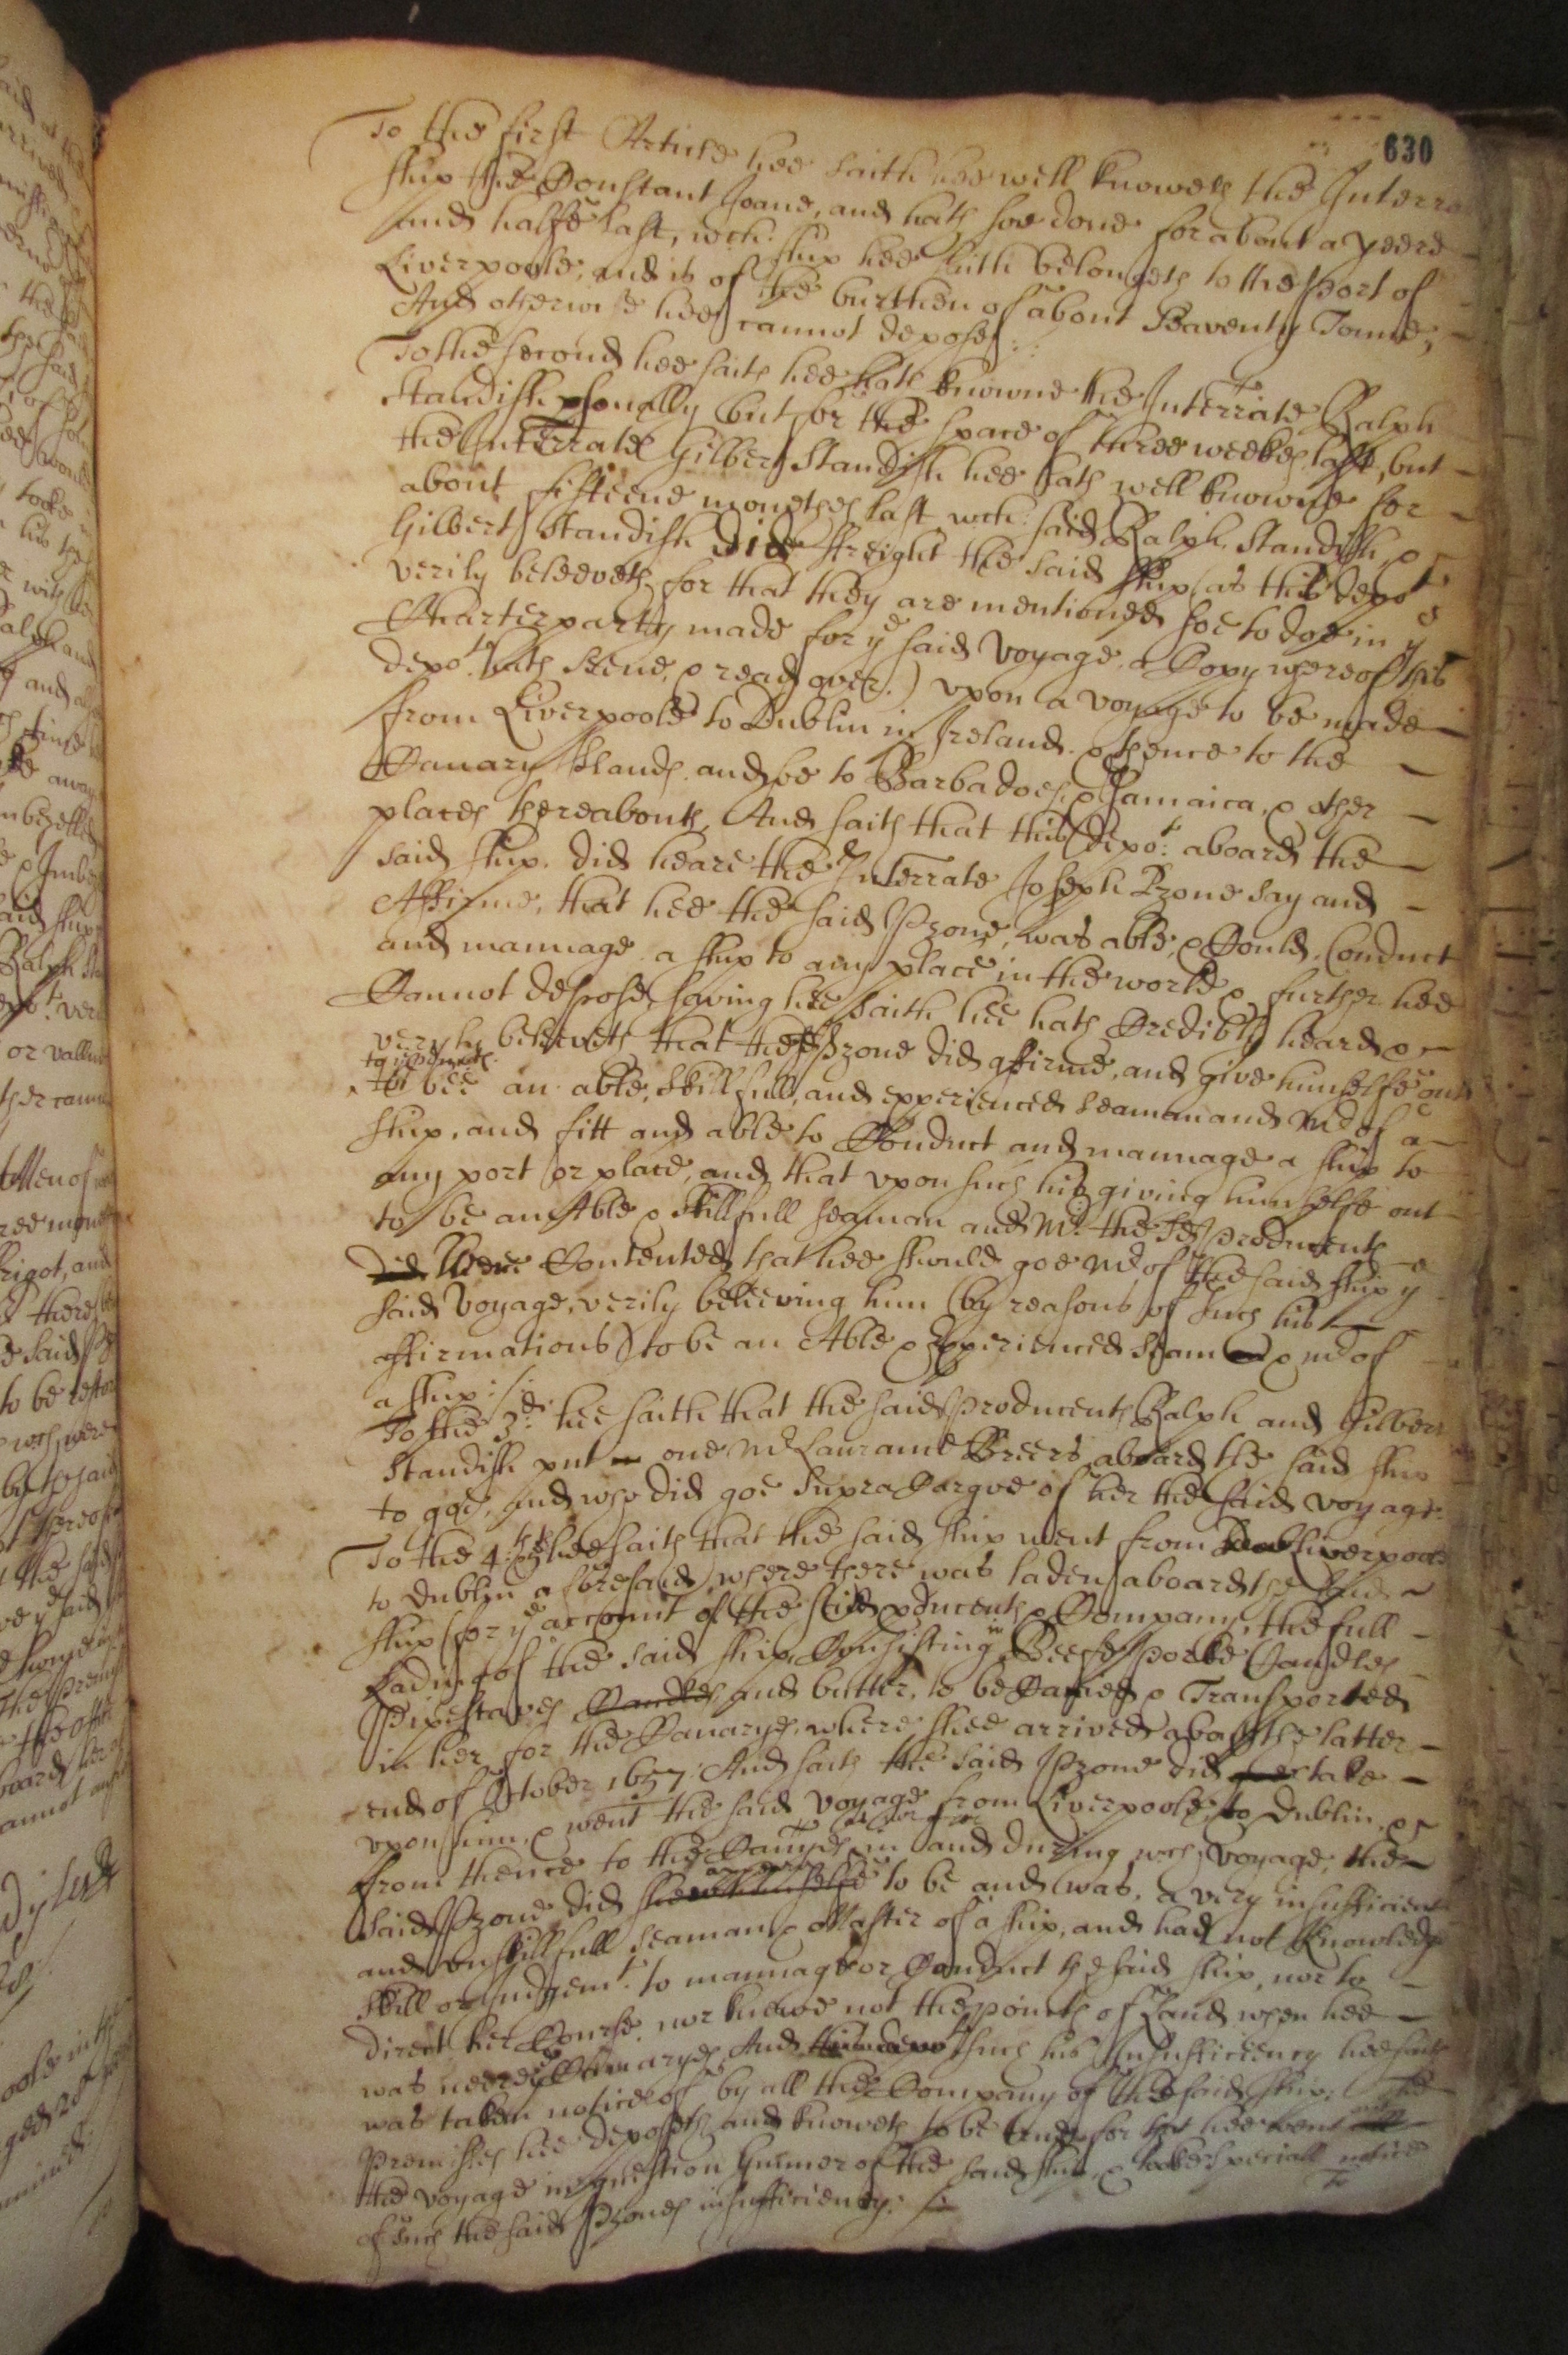 630
To the first Article hee saith hee well knoweth the Interra
shipp the Constant Joane, and hath soe done for about a yeere
and halfe last, wch. ship hee saith belongeth to the Port of
Liverpoole, and is of the burthen of about Seaventy Tonne,
And otherwise hee cannot depose
To the second hee saith hee hath knowne the Interrate Ralph
Standish psonally but for the space of three weekes last, but
the Interrate Gilbert Standish hee hath well knowne for
about fifteene monethes last, wch. said Ralph Standish, &
Gilbert Standish did freight the said ship (as this depot
verily beleeveth, for that they are mentioned soe to doe in ye
Charterparty made for ye said voyage, a Copy whereof this
depot. hath seene, & read over.) upon a voyage to be made
from Liverpoole to Dublin in Ireland. & thence to the
Canary Islands. and soe to Barbadoes, & Jamaica, & other
places thereabouts, And saith that this depot. aboard the
said ship. did heare the Interrate Joseph Pzone say and
Affirme, that hee the said Pzone, was able, & Could Conduct
and mannage a ship to any place in the world & further hee
Cannot depose, saving hee saith hee hath Credibly heard &
verily beleeveth that the sd Pzone did affirme, and give himselfe out
to ye Producents
to bee an able, skillfull, and experienced seaman and Mr of a
ship, and fitt and able to Conduct and mannage a ship to
any port or place, and that upon such his giving himselfe out
to be an Able & skillfull seaman and Mr. the sd Producents
did were Contented that hee should goe Mr of the said ship ye
said voyage, verily beleeving him (by reasons of such his
affirmations) to be an Able & Experienced Seaman & Mr of
a ship:/:
To the 3d: hee saith that the said Producents Ralph and Gilbert
Standish put one Mr Laurance Breers aboard the said ship
to goe, and who did goe Supra Cargoe of her the said voyage
To the 4th hee saith that the said ship went from Liverpoole
to Dublin aforesaid where there was laden aboard the said
ship (for ye account of the said pducents & Company, the full
Lading of the said ship, Consisting in Beefe Porke Candles
Pipestaves Candles and butter, to be Carried & Transported
in her for the Canaryes, where shee arrived about the latter
end of October 1657. And saith the said Pzone did take
upon him, & went the said voyage from Liverpoole, to Dublin, &
from thence to the Canryes, in and during wch. voyage, the
appeare
said Pzone did shew himselfe to be and was, a very insufficient
and unskillfull seaman & Master of a ship, and had not knowledge
skill or Judgemt. to mannage or Conduct the said ship, nor to
direct her Course, nor knewe not the points of Land when hee
was neere ye Canaryes, And this depot such his Insufficiency hee saith
was taken notice of by all the Company of the said ship. The
Premisses hee deposeth, and knoweth to be true for that hee went
the voyage in question Gunner of the said ship, & tooke speciall notice
of such the said Pzones insufficiency. /:
To